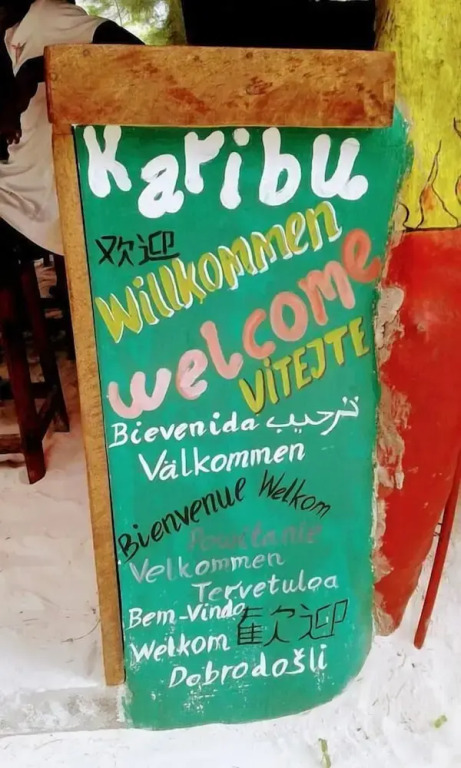 Karibu
欢迎
Willkommen
welcome
VITEJTE
Bievenida ترحيب
Välkommen
Bienvenue Welkom
Powitanie
Velkommen
Tervetuloa
Bem-Vindo
歡迎
Welkom
Dobrodošli